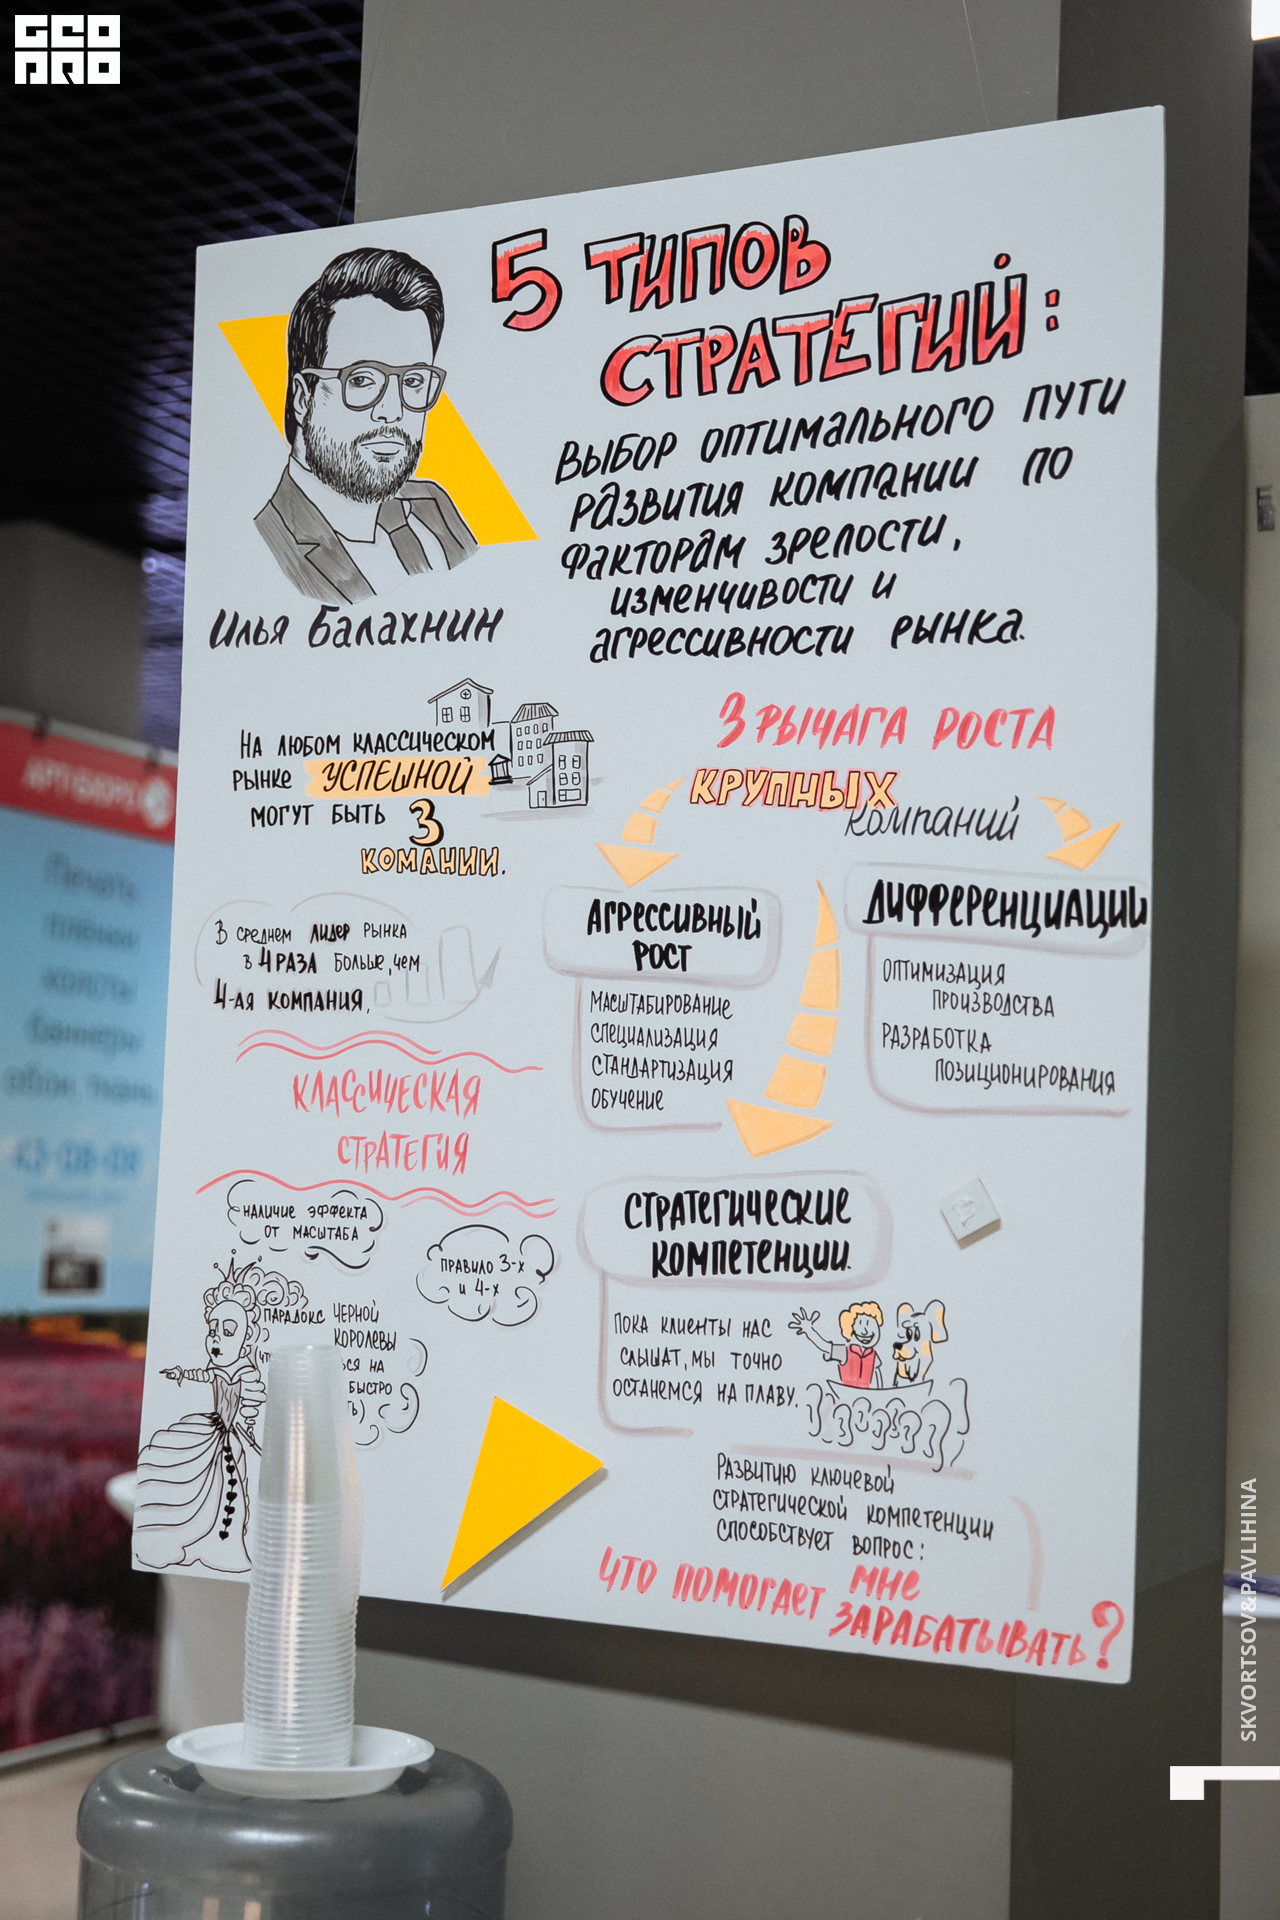 GEO
PRO
5 ТИПОВ
СТРАТЕГИЙ:
ВЫБОР ОПТИМАЛЬНОГО ПУТИ
РАЗВИТИЯ КОМПАНИИ ПО
ФАКТОРАМ ЗРЕЛОСТИ,
ИЗМЕНЧИВОСТИ И
АГРЕССИВНОСТИ РЫНКА.
Илья Балахнин
НА ЛЮБОМ КЛАССИЧЕСКОМ
РЫНКЕ УСПЕШНОЙ
МОГУТ БЫТЬ 3
КОМАНИИ.
В СРЕДНЕМ ЛИДЕР РЫНКА
В 4 РАЗА БОЛЬШЕ, ЧЕМ
4-АЯ КОМПАНИЯ,
КЛАССИЧЕСКАЯ
СТРАТЕГИЯ
НАЛИЧИЕ ЭФФЕКТА
ОТ МАСШТАБА
ПРАВИЛО 3-Х
И 4-Х
ПАРАДОКС ЧЕРНОЙ
КОРОЛЕВЫ
НА
БЫСТРО
3 РЫЧАГА РОСТА
КРУПНЫХ
КОМПАНИЙ
АГРЕССИВНЫЙ
РОСТ
МАСШТАБИРОВАНИЕ
СПЕЦИАЛИЗАЦИЯ
СТАНДАРТИЗАЦИЯ
ОБУЧЕНИЕ
ДИФФЕРЕНЦИАЦИИ
ОПТИМИЗАЦИЯ
ПРОИЗВОДСТВА
РАЗРАБОТКА
ПОЗИЦИОНИРОВАНИЯ
СТРАТЕГИЧЕСКИЕ
КОМПЕТЕНЦИИ.
ПОКА КЛИЕНТЫ НАС
СЛЫШАТ, МЫ ТОЧНО
ОСТАНЕМСЯ НА ПЛАВУ.
РАЗВИТИЮ КЛЮЧЕВОЙ
СТРАТЕГИЧЕСКОЙ КОМПЕТЕНЦИИ
СПОСОБСТВУЕТ ВОПРОС:
ЧТО ПОМОГАЕТ МНЕ
ЗАРАБАТЫВАТЬ?
Печать
43-08-08
SKVORTSOV&PAVLIHINA